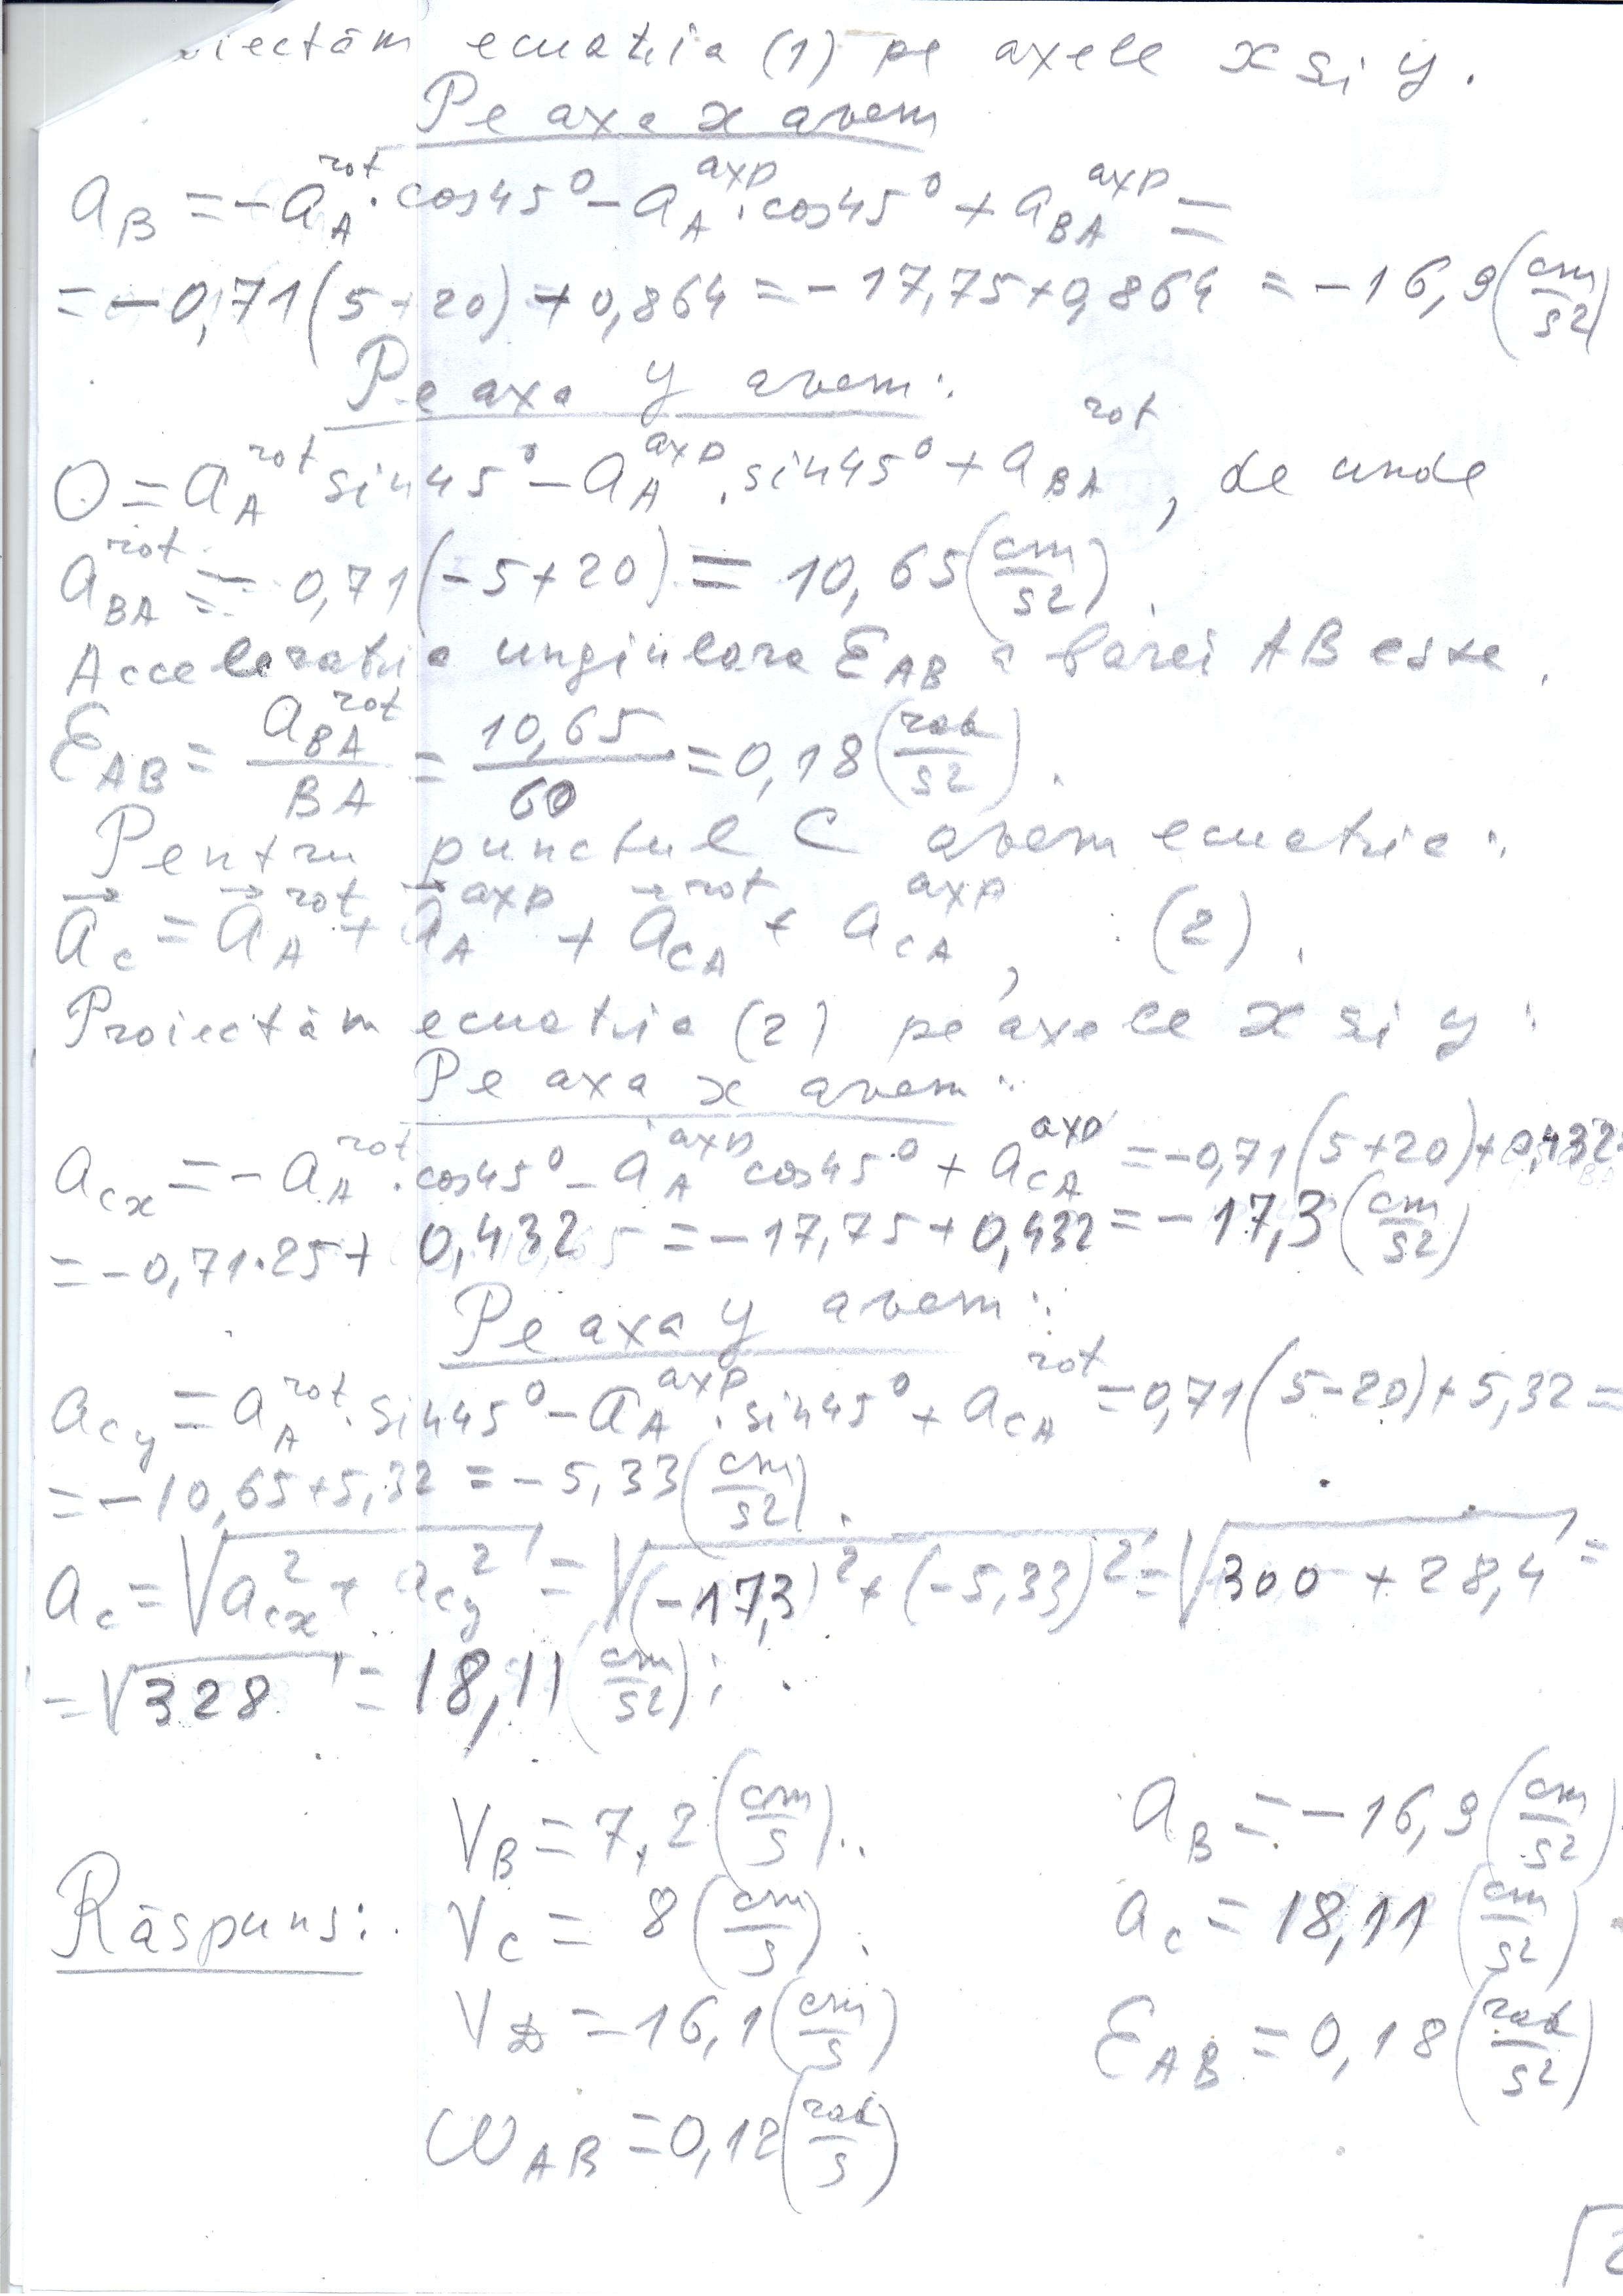 oiectăm ecuația (1) pe axele x și y.
Pe axa x avem
a_B = -a_A^rot · cos45° - a_A^axp · cos45° + a_BA^axp =
= -0,71(5+20) + 0,864 = -17,75+0,864 = -16,9(cm/s2)
Pe axa y avem:
0 = a_A^rot sin45° - a_A^axp · sin45° + a_BA^rot, de unde
a_BA^rot = 0,71(-5+20) = 10,65(cm/s2).
Accelerația unghiulara ε_AB a barei AB este.
ε_AB = a_BA^rot/BA = 10,65/60 = 0,18(rad/s2).
Pentru punctul C avem ecuatia:
a_C = a_A^rot + a_A^axp + a_CA^rot + a_CA^axp, (2).
Proiectăm ecuatia (2) pe axele x și y:
Pe axa x avem:
a_Cx = -a_A^rot · cos45° - a_A^axp cos45° + a_CA^axp = -0,71(5+20)+0,432=
= -0,71·25+ 0,432 = -17,75+0,432 = -17,3(cm/s2)
Pe axa y avem:
a_Cy = a_A^rot · sin45° - a_A^axp · sin45° + a_CA^rot = 0,71(5-20)+5,32=
= -10,65+5,32 = -5,33(cm/s2).
a_C = √(a_Cx² + a_Cy²) = √((-17,3)²+(-5,33)²) = √(300 + 28,4) =
= √328 = 18,11(cm/s2);
V_B = 7,2(cm/s). a_B = -16,9(cm/s2).
Răspuns: V_C = 8(cm/s). a_C = 18,11(cm/s2).
V_D = 16,1(cm/s) ε_AB = 0,18(rad/s2)
ω_AB = 0,12(rad/s)